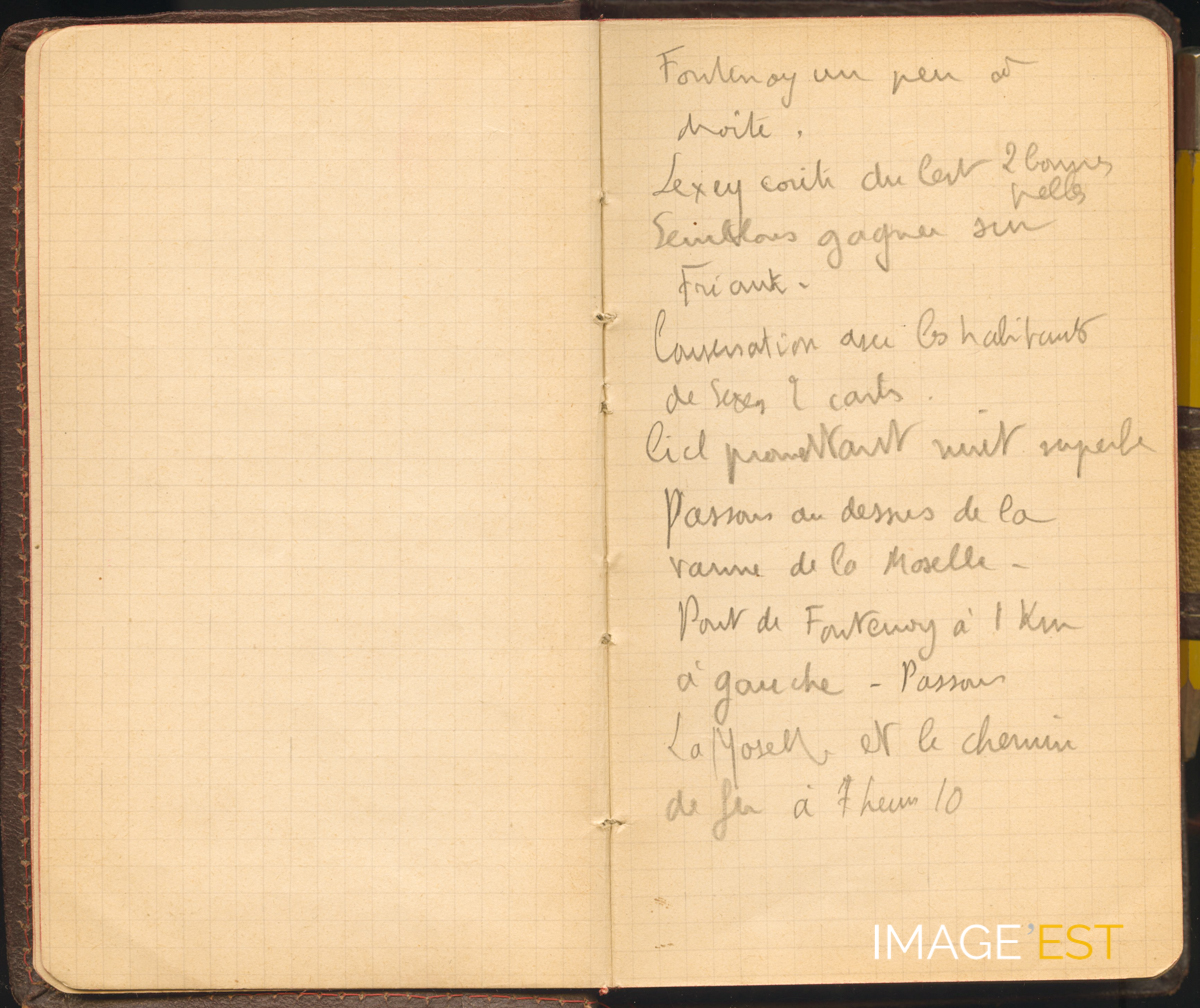 Fontenoy un peu à
droite.
Sexey conité du lest 2 bonnes
pelles
Semblons gagner sur
Friant.
Conversation avec les habitants
de Sexey 2 cartes.
Ciel promettant nuit superbe
Passons au dessus de la
vanne de la Moselle -
Pont de Fontenoy à 1 Km
à gauche - Passons
La Moselle et le chemin
de fer à 7 heures 10
IMAGE'EST